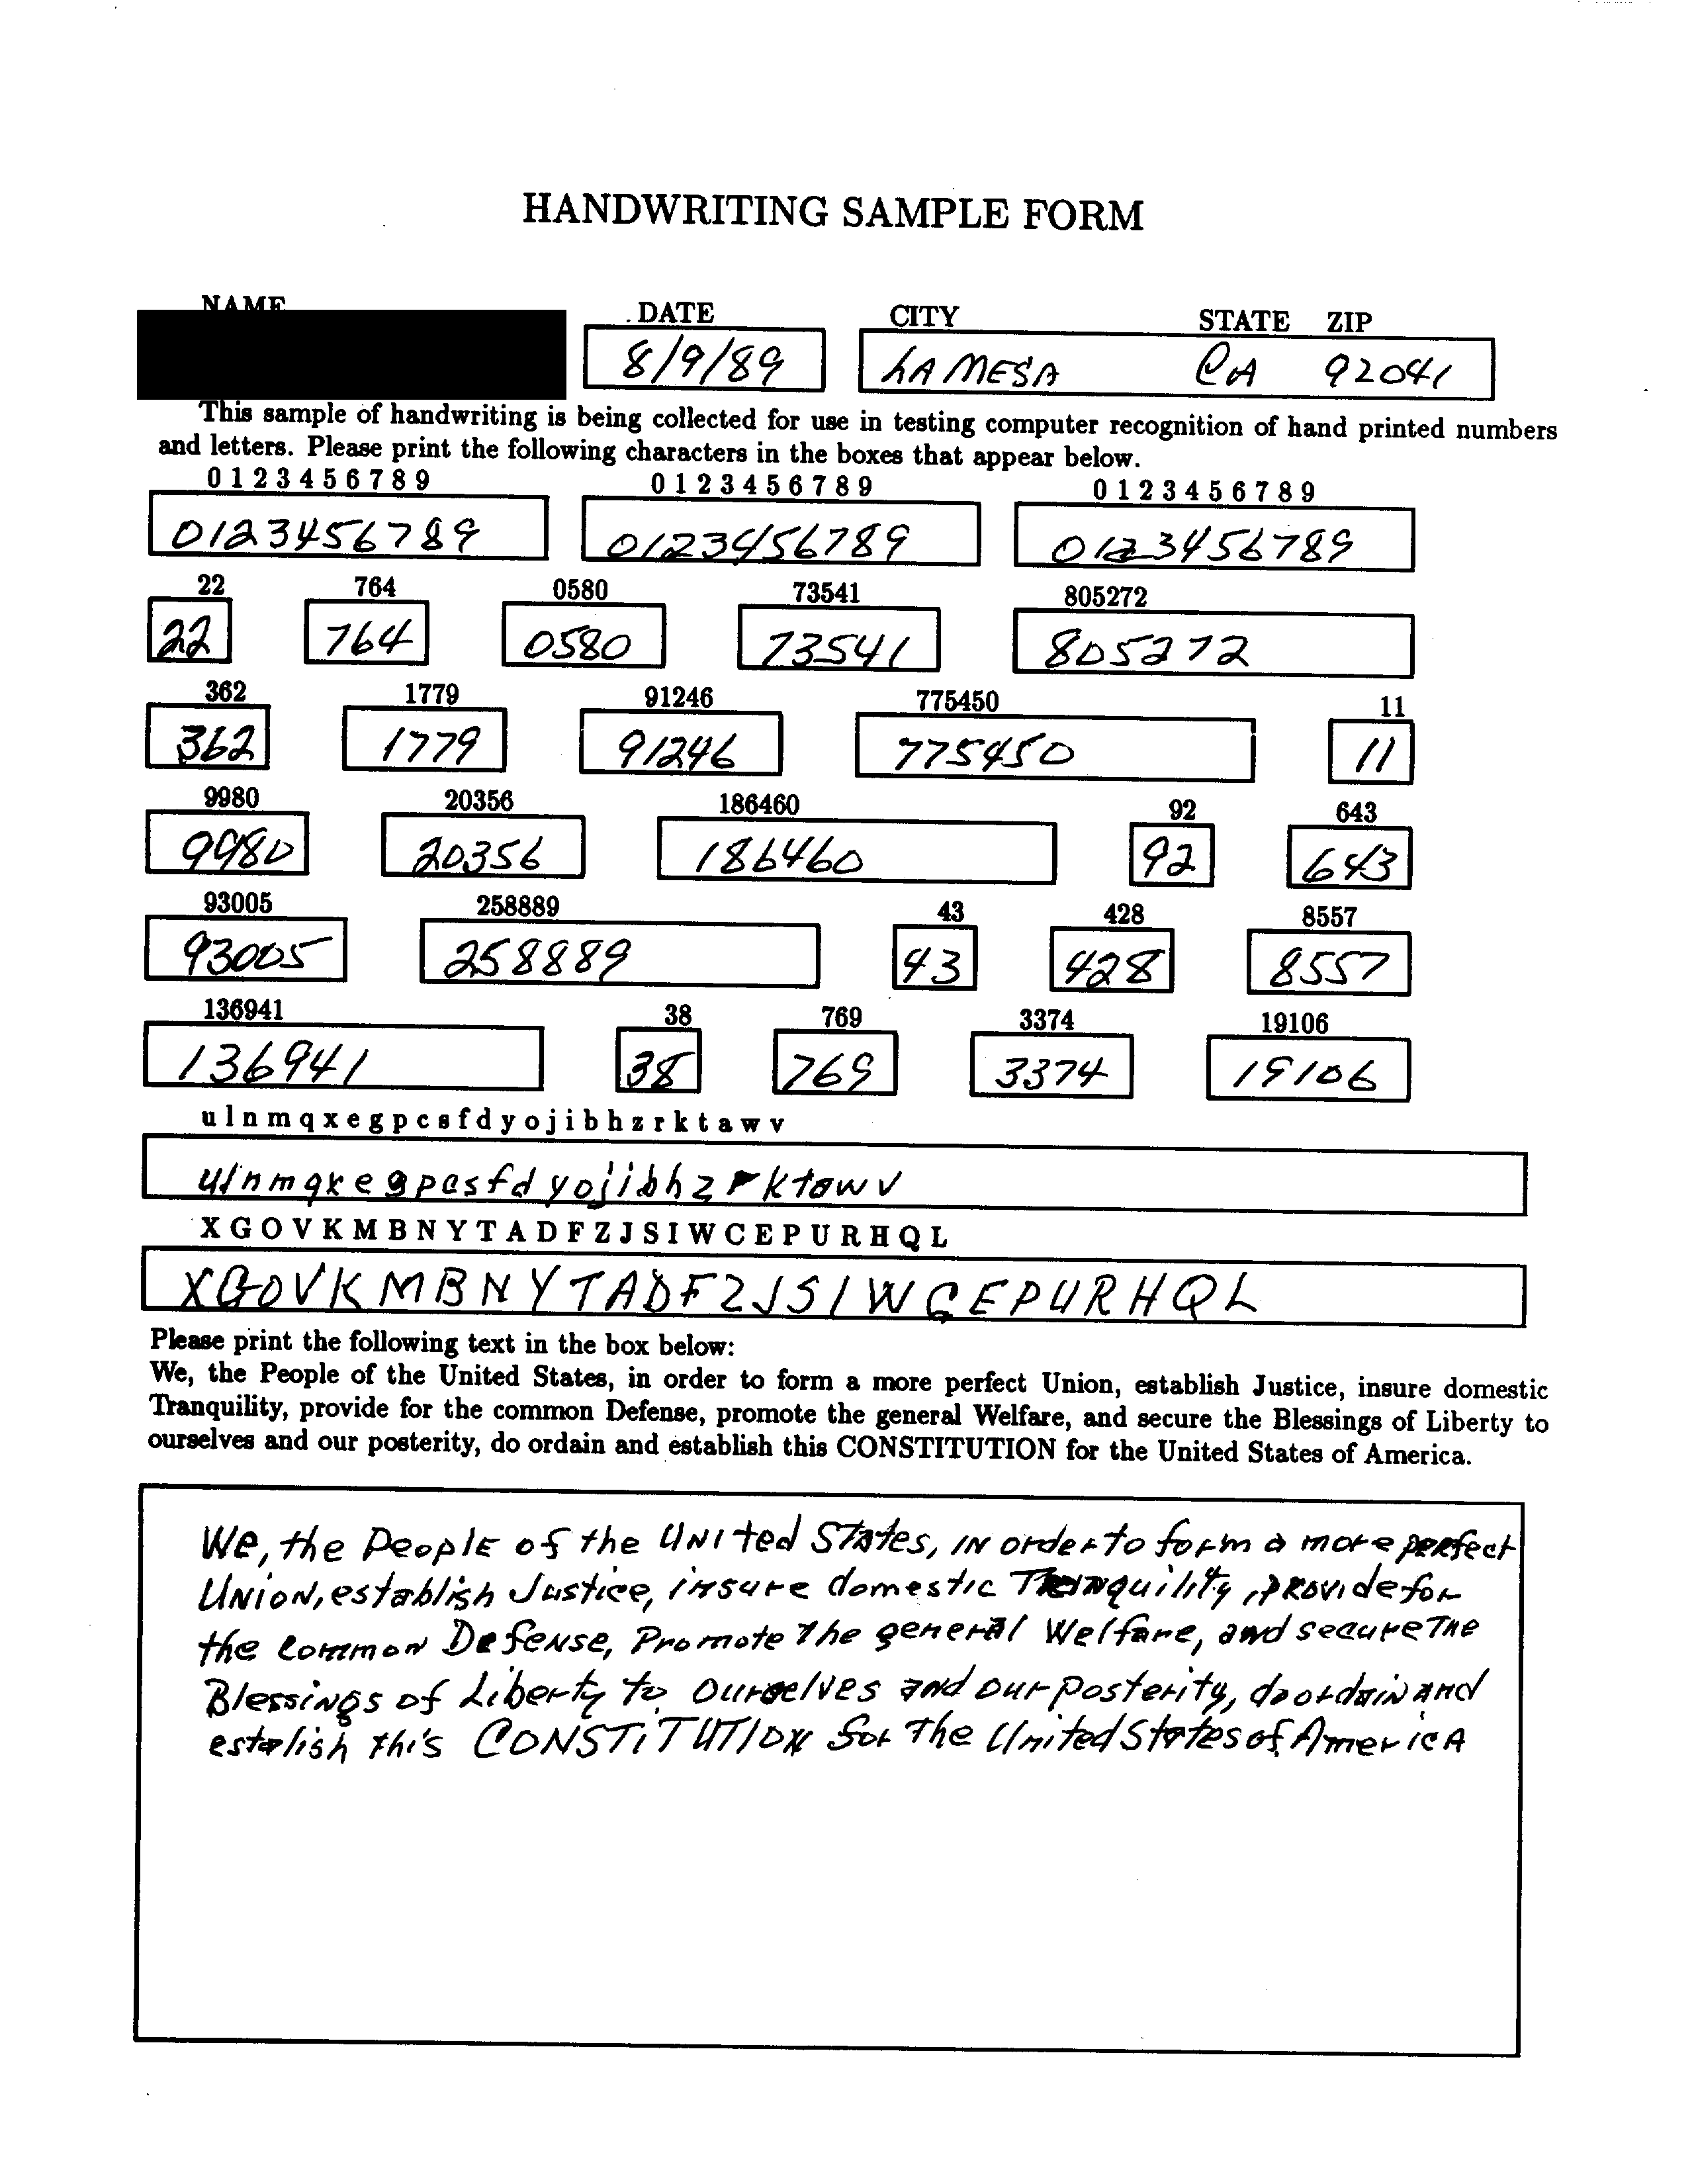 HANDWRITING SAMPLE FORM
NAME DATE CITY STATE ZIP
8/9/89 LA MESA CA 92041
This sample of handwriting is being collected for use in testing computer recognition of hand printed numbers
and letters. Please print the following characters in the boxes that appear below.
0 1 2 3 4 5 6 7 8 9 0 1 2 3 4 5 6 7 8 9 0 1 2 3 4 5 6 7 8 9
0123456789 0123456789 0123456789
22 764 0580 73541 805272
22 764 0580 73541 805272
362 1779 91246 775450 11
362 1779 91246 775450 11
9980 20356 186460 92 643
9980 20356 186460 92 643
93005 258889 43 428 8557
93005 258889 43 428 8557
136941 38 769 3374 19106
136941 38 769 3374 19106
u l n m q x e g p c s f d y o j i b h z r k t a w v
ulnmqxegpcsfdyojibhzrktawv
X G O V K M B N Y T A D F Z J S I W C E P U R H Q L
XGOVKMBNYTADFZJSIWCEPURHQL
Please print the following text in the box below:
We, the People of the United States, in order to form a more perfect Union, establish Justice, insure domestic
Tranquility, provide for the common Defense, promote the general Welfare, and secure the Blessings of Liberty to
ourselves and our posterity, do ordain and establish this CONSTITUTION for the United States of America.
We, the People of the United States, in order to form a more perfect
Union, establish Justice, insure domestic Tranquility, provide for
the common Defense, Promote the general Welfare, and secure The
Blessings of Liberty to ourselves and our posterity, do ordain and
estalish this CONSTITUTION for The United States of America